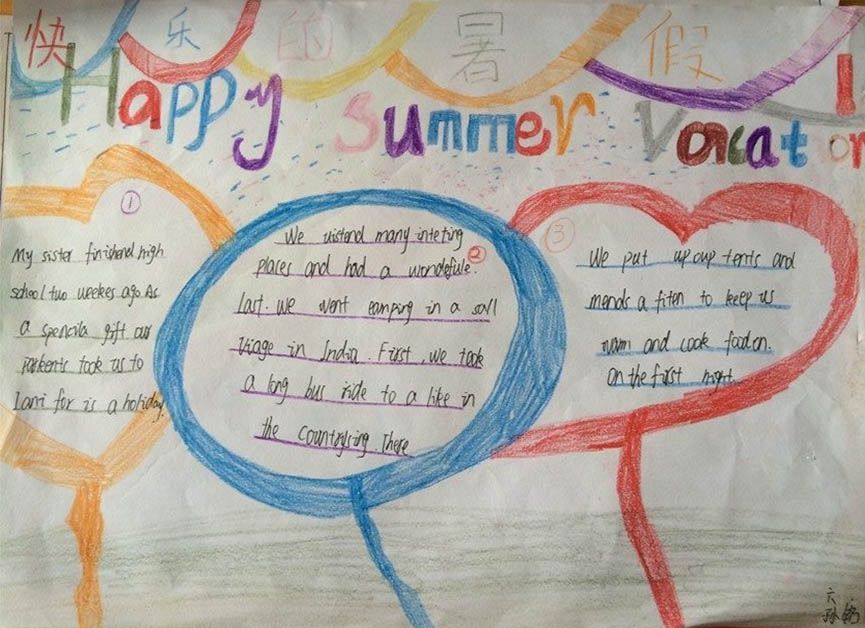 快乐的暑假
Happy Summer Vacation
①
My sister finishend high
school two weekes ago. As
a spencila gift our
parkents took us to
Iani for is a holiday.
②
We uistend many inteting
places and had a wondefule.
Last. We went camping in a sall
viage in India. First. we took
a long bus ride to a like in
the countrysing. There
③
We put up oup tents and
mends a fiten to keep us
warm and cook food on.
on the first night.
六
孙